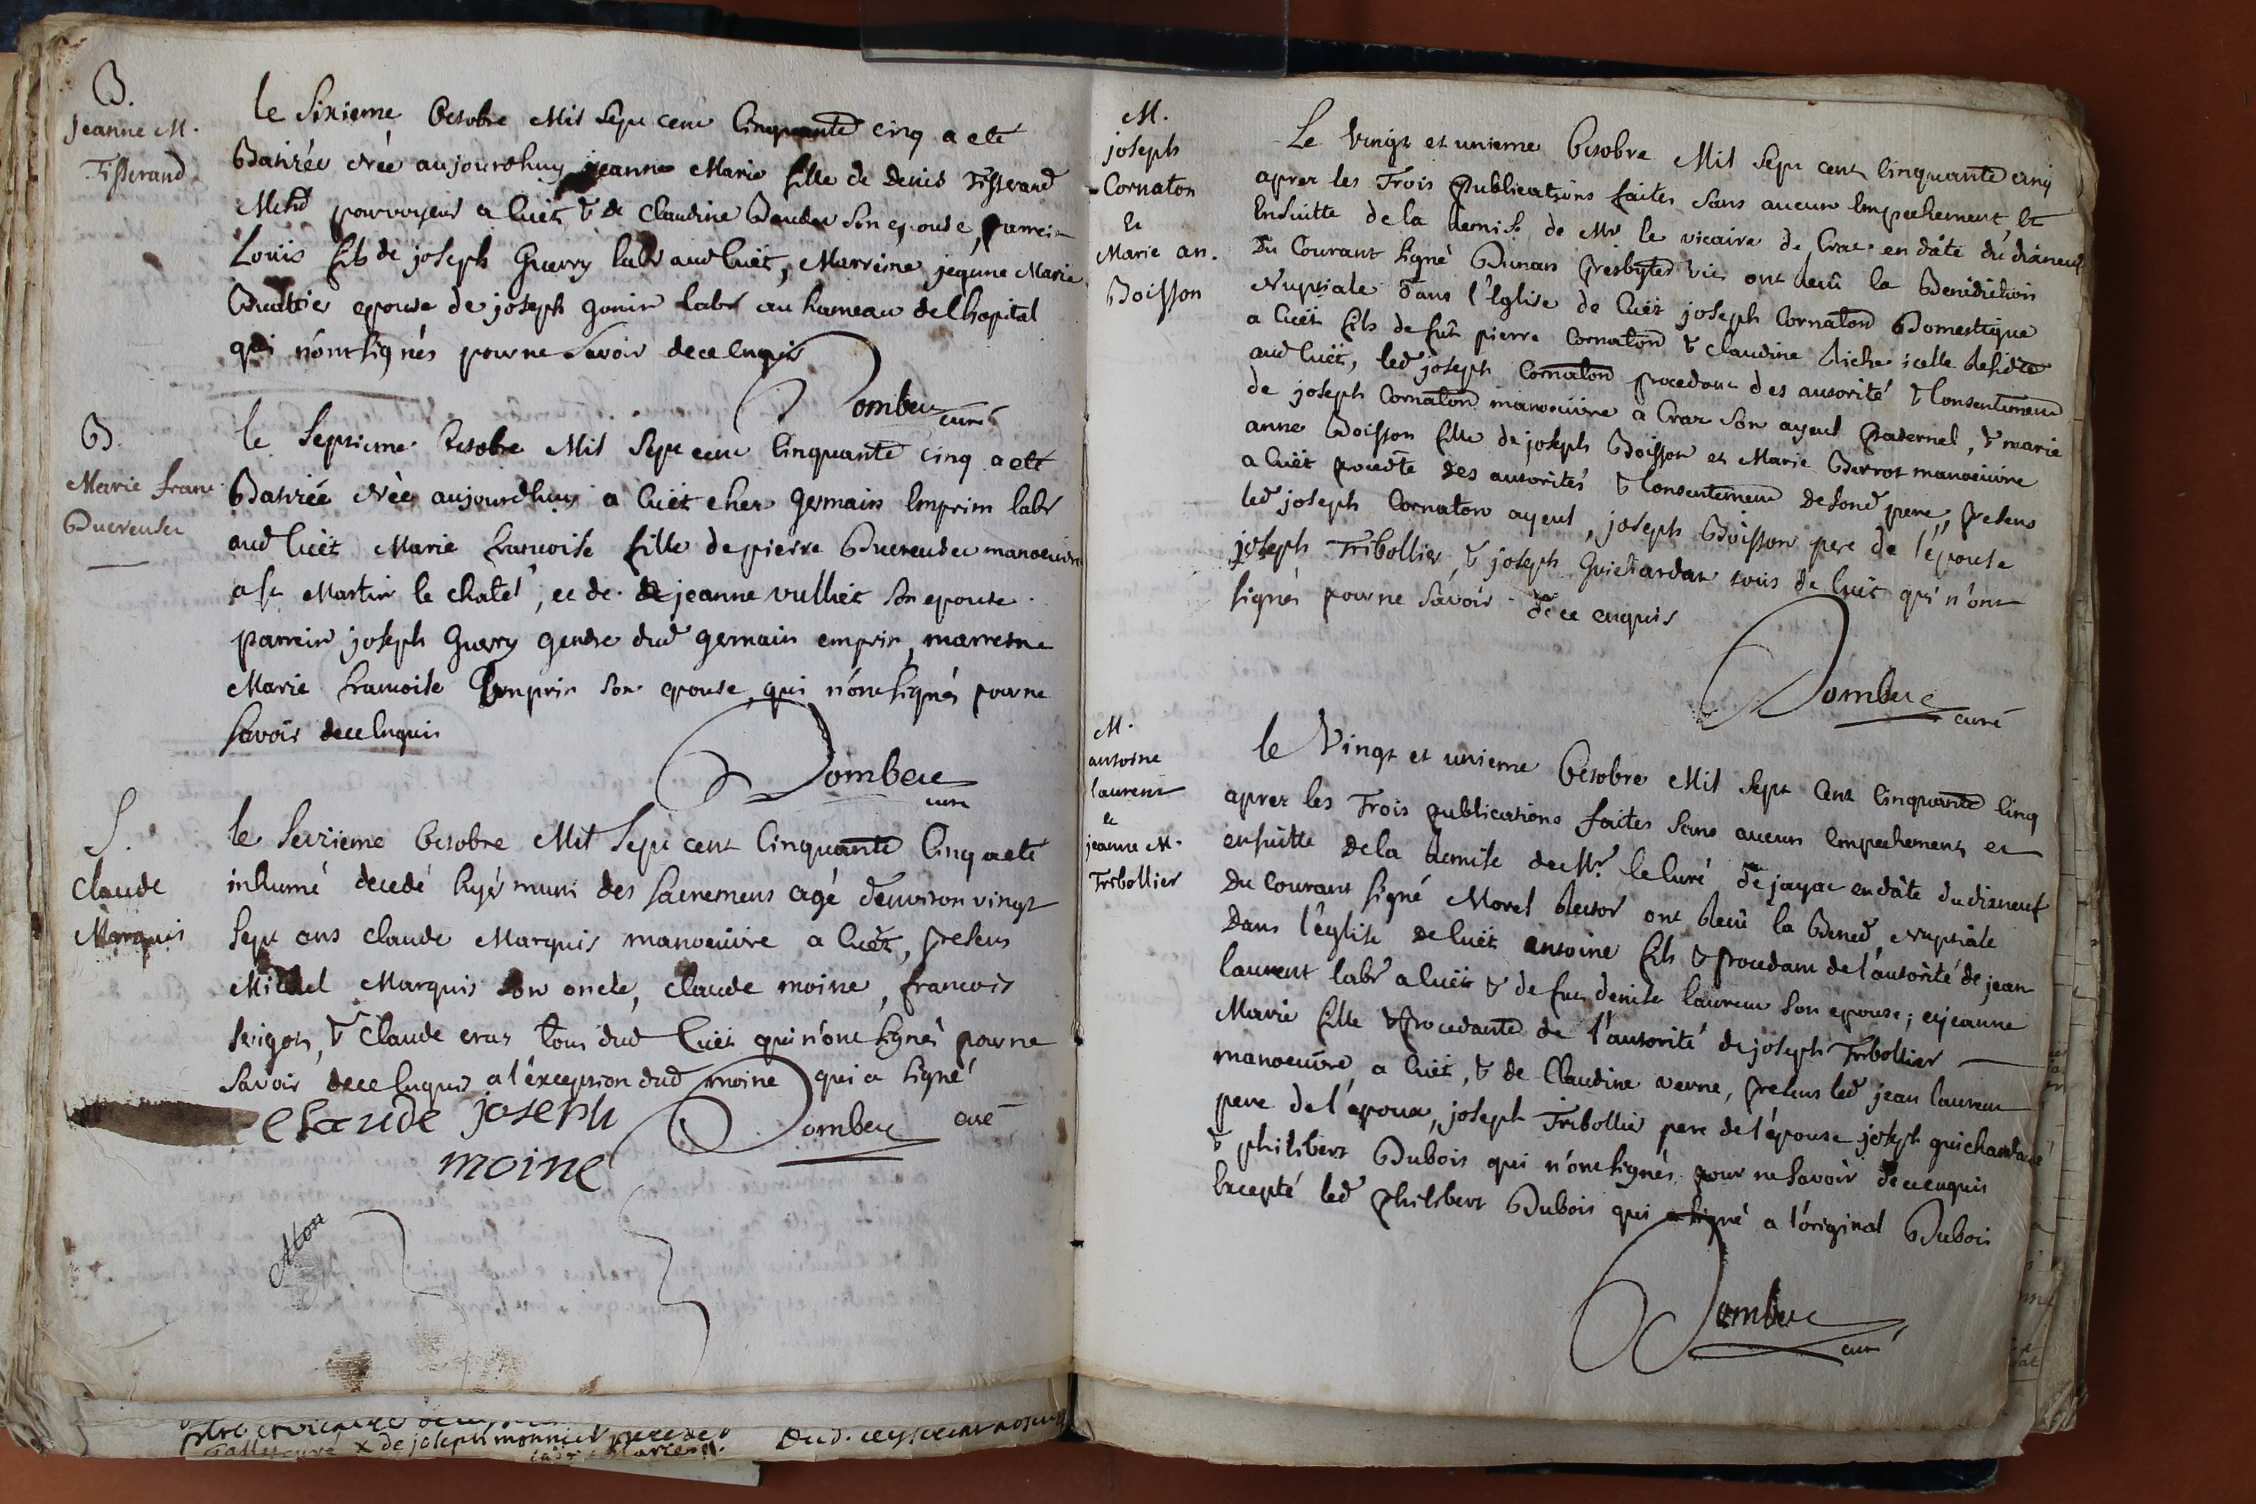 B.
Jeanne M.
Tisserand
le Sixieme Octobre Mil Sept cent Cinquante cinq a eté
Batizée Née aujourdhuy jeanne Marie fille de Denis Tisserand
Mchd pourvoyeur a Cuët & de Claudine son epouse, parrein
Loüis fils de joseph Guerry labr aud Cuët, Marreine jeanne Marie
epouse de joseph gonin labr au hameau de lhopital
qui n'ont signés pour ne Savoir de ce Enquis
Dombey curé
B.
Marie franc
Ducreuset
le Septieme Octobre Mil Sept cent Cinquante cinq a eté
Batizée Née aujourdhuy a Cuët chez germain Emprin labr
aud Cuët Marie francoise fille de pierre Ducreuset manoeuvre
a st Martin le chatel, et de de jeanne vulliet son epouse
parrein joseph Guerry gendre dud germain emprin, marreine
Marie francoise Emprin son epouse, qui n'ont signés pour ne
Savoir de ce Enquis
Dombey
curé
S.
Claude
Marquis
le Seizieme Octobre Mil Sept cent Cinquante Cinq a eté
inhumé decedé hyér muni des Sacremens agé d'environ vingt
Sept ans claude Marquis manoeuvre a Cuët, presens
Michel Marquis son oncle, claude moine, francois
& claude cras tous dud Cuët qui n'ont signés pour ne
Savoir de ce Enquis a l'éxception dud moine qui a signé
claude joseph
moine
Dombey curé
M.
joseph
Cornaton
et
Marie an.
Boisson
Le Vingt et unieme Octobre Mil Sept cent Cinquante cinq
aprez les Trois Publications faites Sans aucun Empechement, et
Ensuitte de la remise de Mr le vicaire de Cras en date du dixneuf
Du Courant signé Dunan Presbyter vic. ont reçû la Benediction
Nuptiale dans l'Eglise de Cuët joseph Cornaton Domestique
a Cuët fils de fût pierre Cornaton & claudine Riche icelle residte
aud Cuët, led joseph Cornaton procedant des autorité & Consentement
de joseph Cornaton manoeuvre a Cras son ayeul Paternel, & marie
anne Boisson fille de joseph Boisson et Marie Berrot manoeuvre
a Cuët procedte des autorités & Consentement de sond pere, Presens
led joseph Cornaton ayeul, joseph Boisson pere de l'épouse
joseph Tribollier, & joseph Guichardan tous de Cuët qui n'ont
signés pour ne Savoir de ce enquis
Dombey
curé
M.
antoine
laurent
et
jeanne M.
Tribollier
le Vingt et unieme Octobre Mil Sept Cent Cinquante Cinq
aprez les Trois publications faites Sans aucun Empechement et
ensuitte de la remise de Mr. le Curé de jayac en date du dixneuf
Du Courant signé Morel Rector ont Reçû la Bened. Nuptiale
Dans l'église de Cuët antoine fils & procedant de l'autorité de jean
laurent labr a Cuët & de fue denise laurent son epouse; et jeanne
Marie fille & Procedante de l'autorité de joseph Tribollier
manoeuvre a Cuët, & de Claudine verne, presens led jean laurent
pere de l'epoux, joseph Tribollier pere de l'épouse joseph guichardan
& philibert Dubois qui n'ont signés pour ne Savoir de ce enquis
Excepté led philibert Dubois qui a signé a l'original Dubois
Dombey
curé